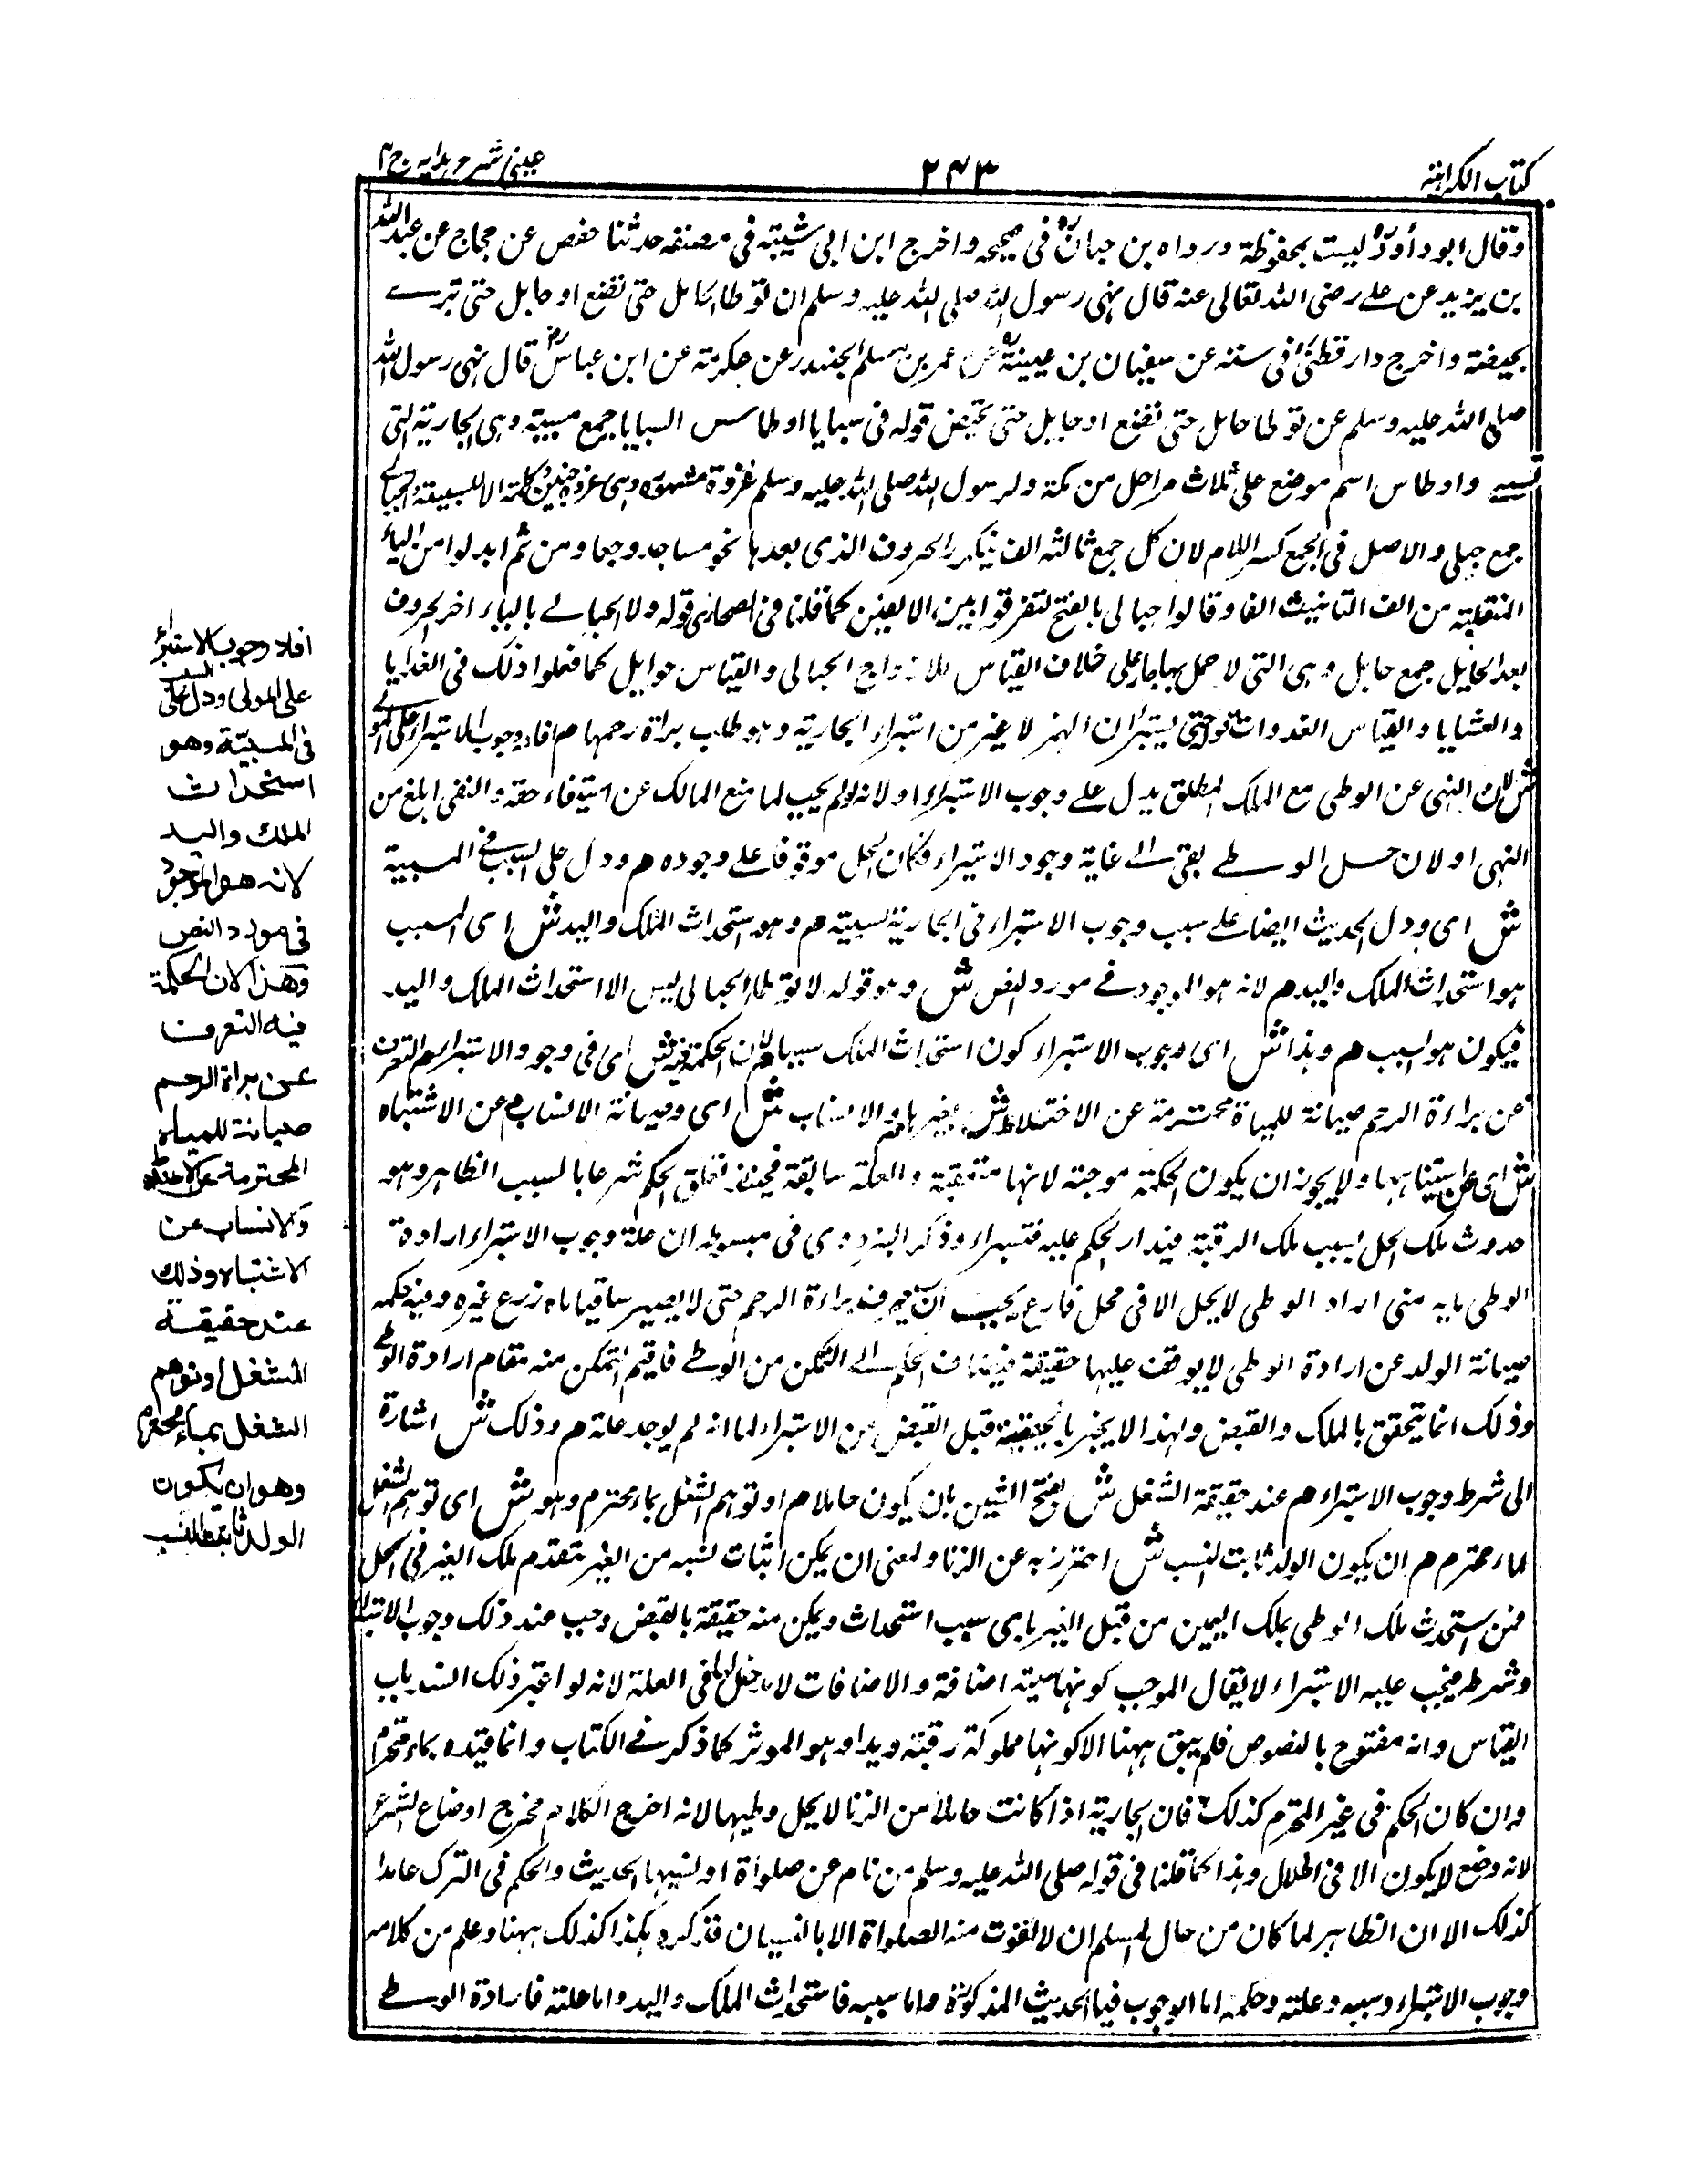 كتاب الكراهية
٢٤٣
عيني شرح هدايه ج ٤
وقال ابو داؤد ليست بمحفوظة ورواه بن حبان في صحيحه واخرج ابن ابي شيبة في مصنفه حدثنا حفص عن حجاج عن عبد الله
بن يزيد عن علے رضى الله تعالى عنه قال نهى رسول الله صلى الله عليه وسلم ان توطا الحامل حتى تضع او حايل حتى تبرے
بحيضة واخرج دار قطني في سننه عن سفيان بن عيينة عن عمر بن مسلم الجندر عن عكرمة عن ابن عباس قال نهى رسول الله
صلى الله عليه وسلم عن توطا حامل حتى تضع او حايل حتى تحيض قوله في سبايا اوطاس السبايا جمع مسبية وهى الجارية التى
تسبى واوطاس اسم موضع على ثلاث مراحل من مكة ولرسول الله صلى الله عليه وسلم غزوة مشهورة وهى غزوة حنين
جمع حبلى والاصل في الجمع كسر اللام لان كل جمع ثالثه الف يكسر الحروف الذى بعدها نحو مساجد وجعا ومن ثم ابدلوا من الياء
المنقلبة من الف التانيث الفا وقالوا حبالى بالفتح لتفرقوا بين الالفين كما قلنا في الصحارى قوله ولا الحبالے بالياء اخر الحروف
بعد الحايل جمع حايل وهى التى لا حمل بها جا على خلاف القياس للازدواج الحبالى والقياس حوايل كما فعلوا ذلك في الغدايا
والعشايا والقياس الغدوات قوله حتى يستبران الهمز لا غير من استبراء الجارية وهو طلب براة رحمها م افاد وجوب الاستبراء على المولے
ش لان النهى عن الوطى مع الملك المطلق يدل علے وجوب الاستبراء او لانه لو لم يجب لما منع المالك عن استيفاء حقه والنفى ابلغ من
النهى او لان حل الوطے بقى الے غاية وجود الاستبراء فكان الحل موقوفا علے وجوده م ودل على السبب في المسبية
ش اى ودل الحديث ايضا علے سبب وجوب الاستبراء في الجارية المسبية م وهو استحداث الملك واليد ش اى السبب
هو استحداث الملك واليد م لانه هو الموجود فے مورد النص ش وهو قوله لا توطا الحبالى ليس الا استحداث الملك واليد
فيكون هو السبب م وهذا ش اى وجوب الاستبراء كون استحداث الملك سببا م لان الحكمة فيه ش اى في وجود الاستبراء م التعرف
عن براءة الرحم صيانة للمياة محترمة عن الاختلاط ش بغيرها م والانساب ش اى وصيانة الانساب م عن الاشتباه
ش اى عن اشتباهها ولا يجوز ان يكون الحكمة موجبة لانها متعقبة والعلة سابقة فحينئذ تعلق الحكم شرعا بالسبب الظاهر وهو
حدوث ملك الحل بسبب ملك الرقبة فيدار الحكم عليه فتستبراء وذكر البزدوى في مبسوطه ان علة وجوب الاستبراء ارادة
الوطى بانه متى اراد الوطى لا يحل الا في محل فارغ يجب ان يعرف براءة الرحم حتى لا يصير ساقيا ماه زرع غيره وفيه حكمة
صيانة الولد عن ارادة الوطى لا يوقف عليها حقيقة فيضاف الحكم الے التمكن من الوطے فاقيم التمكن منه مقام ارادة الوطے
وذلك انما يتحقق بالملك والقبض ولهذا لا يجزى بالحيضة قبل القبض عن الاستبراء لما انه لم يوجد علة م وذلك ش اشارة
الى شرط وجوب الاستبراء م عند حقيقة الشغل ش بفتح الشين بان يكون حاملا م او توهم الشغل بماء محترم وهو ش اى توهم الشغل
بماء محترم م ان يكون الولد ثابت النسب ش احترز به عن الزنا ولمعنى ان يمكن اثبات نسبه من الغير بتقدم ملك الغير في المحل
فمن استحدث ملك الوطى بملك اليمين من قبل الغير باى سبب استحداث ويمكن منه حقيقة بالقبض وجب عند ذلك وجوب الاستبراء
وشرطه فيجب عليه الاستبراء لا يقال الموجب كونها مسبية اضافة والاضافات لا مدخل لها في العلة لانه لو اعتبر ذلك انسد باب
القياس وانه مفتوح بالنصوص فلم يبق ههنا الا كونها مملوكة رقبة ويدا وهو الموثر كما ذكر فے الكتاب وانما قيده بماء محترم
وان كان الحكم في غير المحترم كذلك فان الجارية اذا كانت حاملا من الزنا لا يحل وطيها لانه اخرج الكلام مخرج اوضاع الشرع
لانه وضع لا يكون الا في الحلال وهذا كما قلنا في قوله صلى الله عليه وسلم من نام عن صلوٰة او نسيها الحديث والحكم في الترك عامدا
كذلك الا ان الظاهر لما كان من حال المسلم ان لا تفوت منه الصلواة الا بالنسيان فذكره هكذا كذلك ههنا وعلم من كلامه
وجوب الاستبراء وسببه وعلته وحكمته اما الوجوب فبالحديث المذكورة واما سببه فاستحداث الملك واليد واما علته فارادة الوطے
افاد وجوب الاستبراء
على المولى ودل على السبب
في المسبيّة وهو
استحداث
الملك واليد
لانه هو الموجود
في مورد النص
وهذا لان الحكمة
فيه التعرف
عن براءة الرحم
صيانة للمياه
المحترمة عن الاختلاط
والانساب عن
الاشتباه وذلك
عند حقيقة
الشغل او توهم
الشغل بماء محترم
وهو ان يكون
الولد ثابت النسب